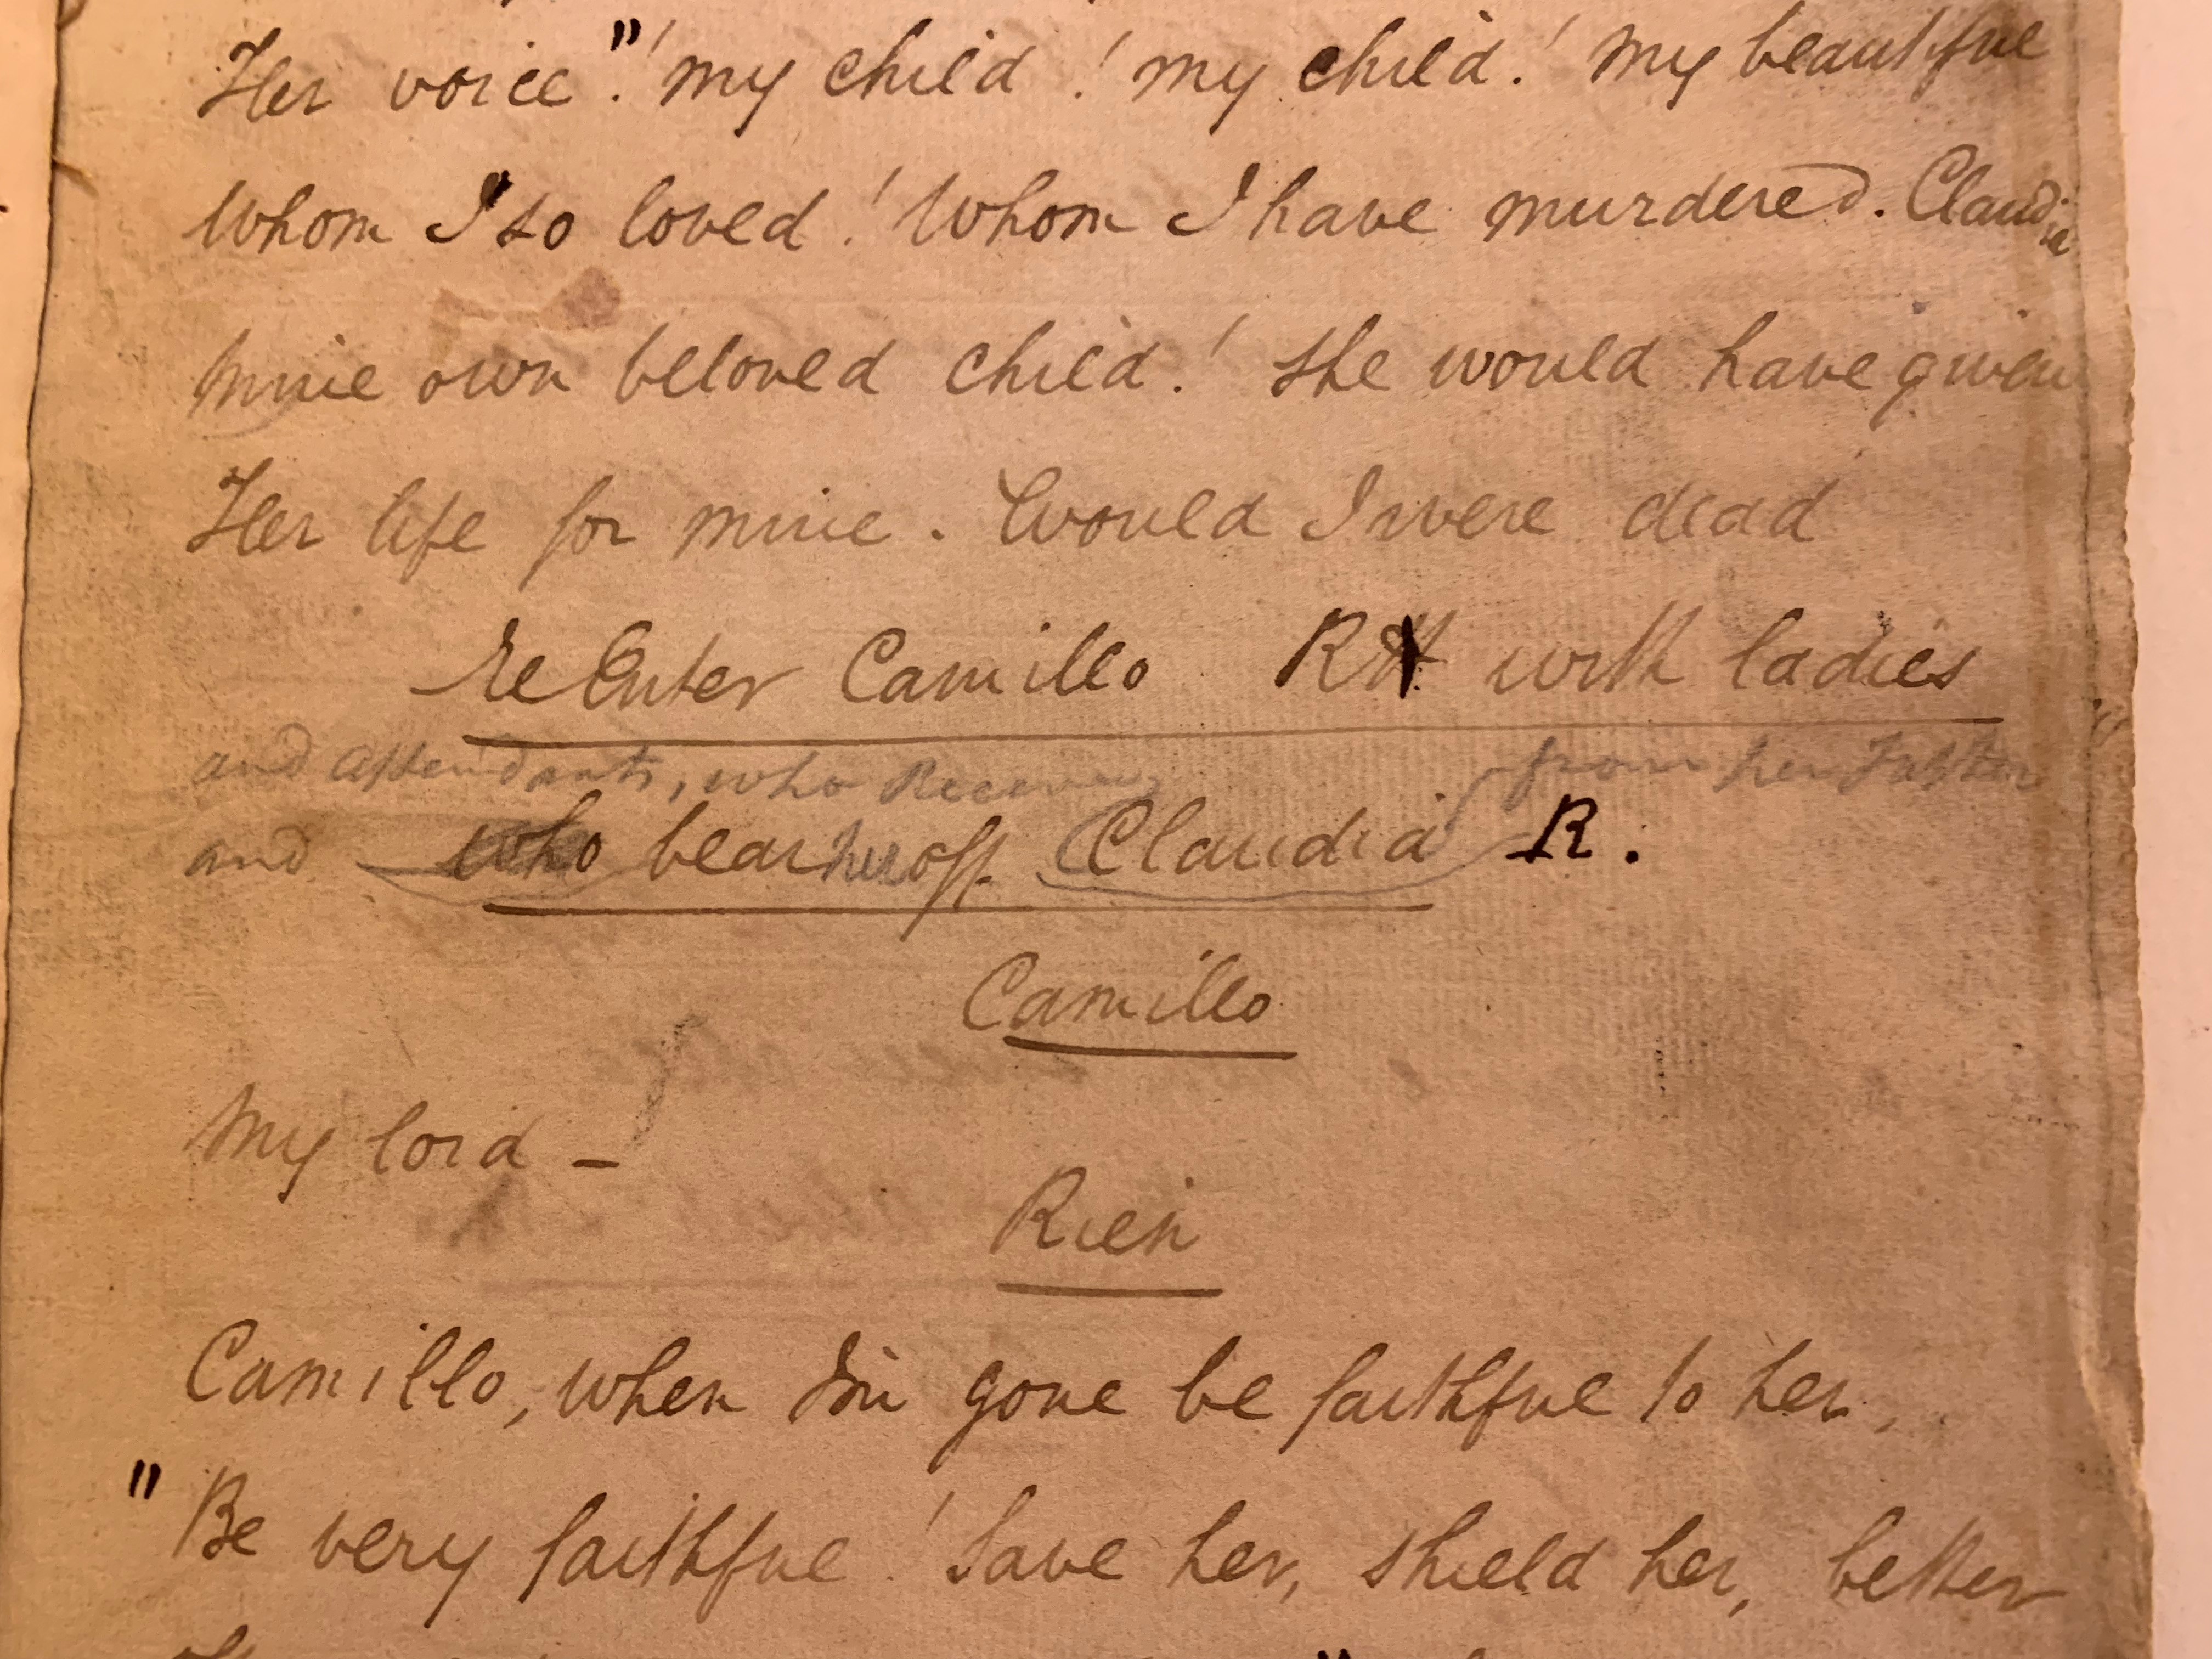 Her voice"! my child! my child! My beautiful
Whom I "so loved! Whom I have murdered. Claudia
Mine own beloved child! She would have given
Her life for mine. Would I were dead
ReEnter Camillo R with ladies
and attendants, who Receive from her Father
and who bear her off Claudia R.
Camillo
My lord —
Rien
Camillo, when I'm gone be faithful to her,
" Be very faithful! Save her, shield her, better